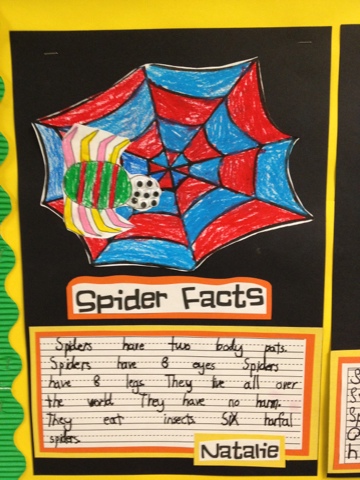 Spider Facts
Spiders have two body pats.
Spiders have 8 eyes Spiders
have 8 legs They live all over
the world They have no harm.
They eat insects Six harfal
spiders.
Natalie